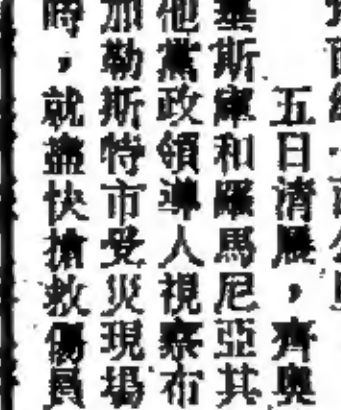 五日清晨，齊奧
塞斯庫和羅馬尼亞其
他黨政領導人視察布
加勒斯特市受災現場
時，就盡快搶救傷員